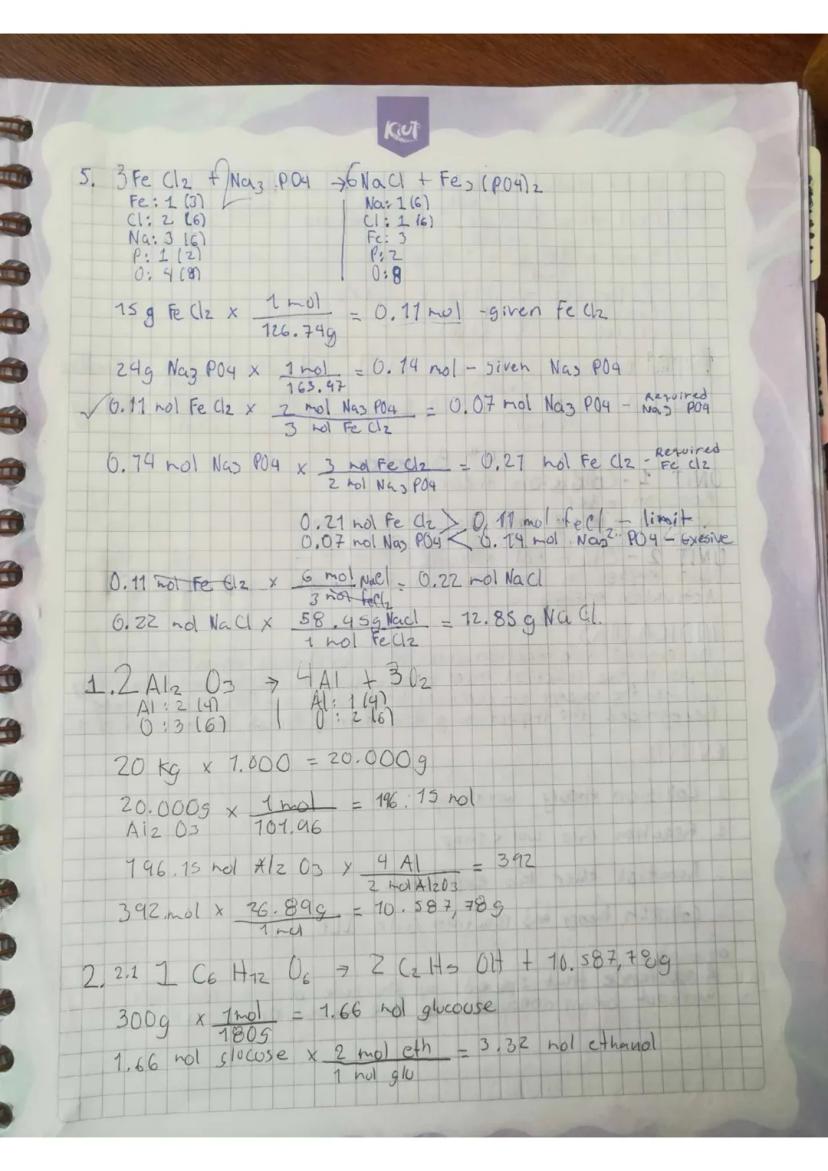 KIUT
5. 3Fe Cl2 + 2Na3 PO4 → 6NaCl + Fe3 (PO4)2
Fe: 1 (3) Na: 1 (6)
Cl: 2 (6) Cl: 1 (6)
Na: 3 (6) Fe: 3
P: 1 (2) P: 2
O: 4 (8) O: 8
15 g Fe Cl2 × 1 mol / 126.74g = 0.11 mol - given Fe Cl2
24g Na3 PO4 × 1 mol / 163.47 = 0.14 mol - given Na3 PO4
✓ 0.11 mol Fe Cl2 × 2 mol Na3 PO4 / 3 mol Fe Cl2 = 0.07 mol Na3 PO4 - Required Na3 PO4
0.14 mol Na3 PO4 × 3 mol Fe Cl2 / 2 mol Na3 PO4 = 0.21 mol Fe Cl2 - Required Fe Cl2
0.21 mol Fe Cl2 > 0.11 mol feCl2 - limit
0.07 mol Na3 PO4 < 0.14 mol Na3 PO4 - Exesive
0.11 mol Fe Cl2 × 6 mol NaCl / 3 mol feCl2 = 0.22 mol NaCl
0.22 mol NaCl × 58.45g Nacl / 1 mol FeCl2 = 12.85 g NaCl.
1. 2 Al2 O3 → 4Al + 3O2
Al: 2 (4) Al: 1 (4)
O: 3 (6) O: 2 (6)
20 kg × 1.000 = 20.000g
20.000g Al2 O3 × 1mol / 101.96 = 196.15 mol
196.15 mol Al2 O3 × 4 Al / 2 mol Al2O3 = 392
392 mol × 26.89g / 1 mol = 10.587,78g
2. 2.1 1 C6 H12 O6 → 2 C2 H5 OH + 10.587,78g
300g × 1mol / 180g = 1.66 mol glucouse
1.66 mol glucose × 2 mol eth / 1 mol glu = 3.32 mol ethanol